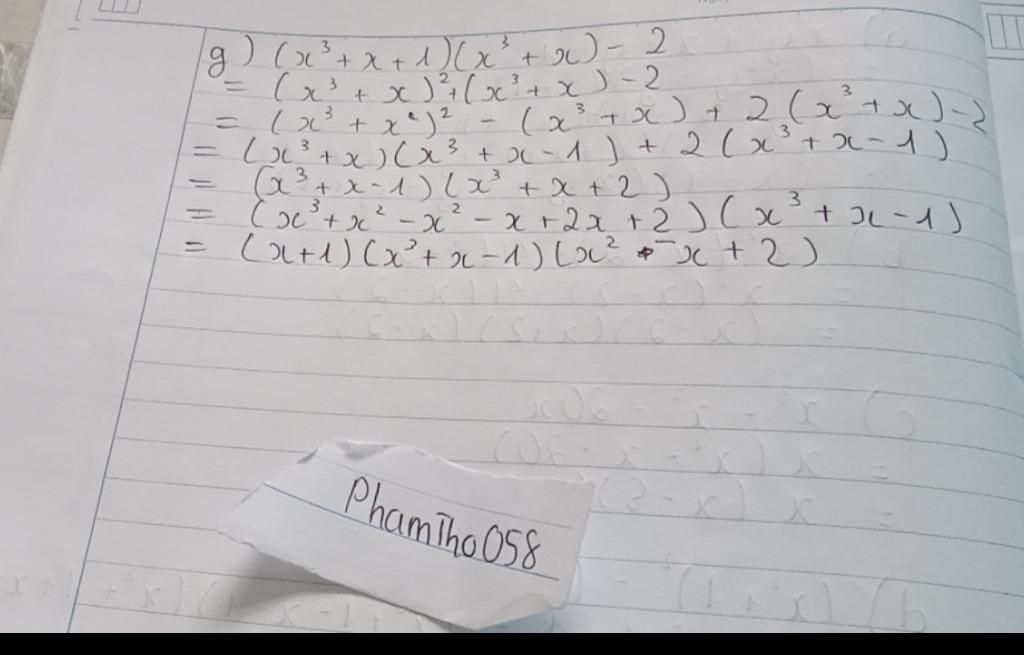 g) (x³ + x + 1)(x³ + x) - 2
= (x³ + x)² + (x³ + x) - 2
= (x³ + x)² - (x³ + x) + 2(x³ + x) - 2
= (x³ + x)(x³ + x - 1) + 2(x³ + x - 1)
= (x³ + x - 1)(x³ + x + 2)
= (x³ + x² - x² - x + 2x + 2)(x³ + x - 1)
= (x + 1)(x³ + x - 1)(x² - x + 2)
PhamTho058